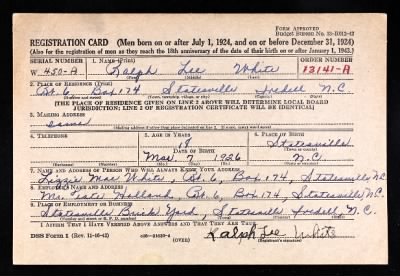 Form Approved
Budget Bureau No. 33-R012-42
REGISTRATION CARD (Men born on or after July 1, 1924, and on or before December 31, 1924)
(Also for the registration of men as they reach the 18th anniversary of the date of their birth on or after January 1, 1943.)
SERIAL NUMBER 1. NAME (Print) ORDER NUMBER
W 450-A Ralph Lee White 13141-A
(First) (Middle) (Last)
2. PLACE OF RESIDENCE (Print)
Rt. 6, Box 174 Statesville Iredell N.C.
[THE PLACE OF RESIDENCE GIVEN ON LINE 2 ABOVE WILL DETERMINE LOCAL BOARD
JURISDICTION; LINE 2 OF REGISTRATION CERTIFICATE WILL BE IDENTICAL]
3. MAILING ADDRESS
same
[Mailing address if other than place indicated on line 2. If same, insert word same]
4. TELEPHONE 5. AGE IN YEARS 6. PLACE OF BIRTH
18 Statesville
DATE OF BIRTH
Mar. 7 1926 N.C.
7. NAME AND ADDRESS OF PERSON WHO WILL ALWAYS KNOW YOUR ADDRESS
Lizzie Mae White, Rt. 6, Box 174, Statesville, N.C.
8. EMPLOYER'S NAME AND ADDRESS
Mr. Tate Holland, Rt. 6, Box 174, Statesville N.C.
9. PLACE OF EMPLOYMENT OR BUSINESS
Statesville Brick Yard, Statesville Iredell N.C.
I AFFIRM THAT I HAVE VERIFIED ABOVE ANSWERS AND THAT THEY ARE TRUE.
DSS Form 1 (Rev. 11-16-42) (OVER) Ralph Lee White
(Registrant's signature)